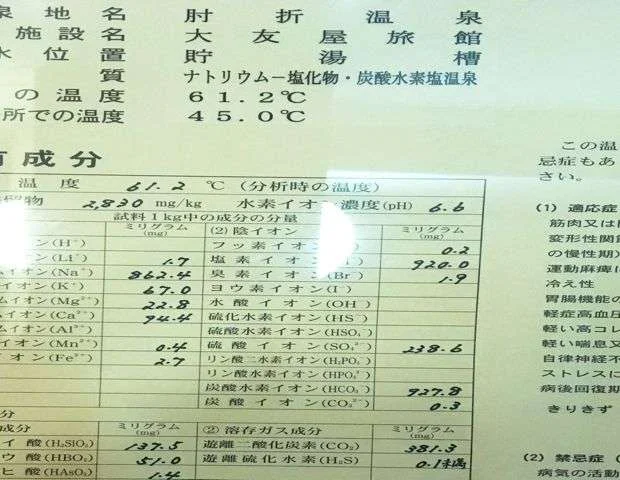 泉地名 肘折温泉
施設名 大友屋旅館
水位置 貯湯槽
質 ナトリウム－塩化物・炭酸水素塩温泉
の温度 61.2℃
所での温度 45.0℃
有成分
温度 61.2 ℃ (分析時の温度)
留物 2,830 mg/kg 水素イオン濃度(pH) 6.6
試料1kg中の成分の分量
ミリグラム(mg) (2) 陰イオン ミリグラム(mg)
ン(H⁺) フッ素イオン 0.2
ン(Li⁺) 1.7 塩素イオ 920.0
イオン(Na⁺) 862.4 臭素イオン(Br⁻) 1.9
イオン(K⁺) 67.0 ヨウ素イオン(I⁻)
ムイオン(Mg²⁺) 22.8 水酸イオン(OH⁻)
ムイオン(Ca²⁺) 94.4 硫化水素イオン(HS⁻)
ムイオン(Al³⁺) 硫酸水素イオン(HSO₄⁻)
イオン(Mn²⁺) 0.4 硫酸イオン(SO₄²⁻) 238.6
イオン(Fe²⁺) 2.7 リン酸二水素イオン(H₂PO₄⁻)
リン酸水素イオン(HPO₄²⁻)
炭酸水素イオン(HCO₃⁻) 927.8
炭酸イオン(CO₃²⁻) 0.3
分
成分 ミリグラム(mg) ② 溶存ガス成分 ミリグラム(mg)
イ酸(H₂SiO₃) 137.5 遊離二酸化炭素(CO₂) 381.3
ウ酸(HBO₂) 51.0 遊離硫化水素(H₂S) 0.1未満
ヒ酸(HAsO₂) 1.4
この温
忌症もあ
さい。
(1) 適応症
筋肉又は関
変形性関節
の慢性期)
運動麻痺に
冷え性
胃腸機能の
軽症高血圧
軽い高コレ
軽い喘息又
自律神経不
ストレスに
病後回復期
きりきず
(2) 禁忌症 (
病気の活動